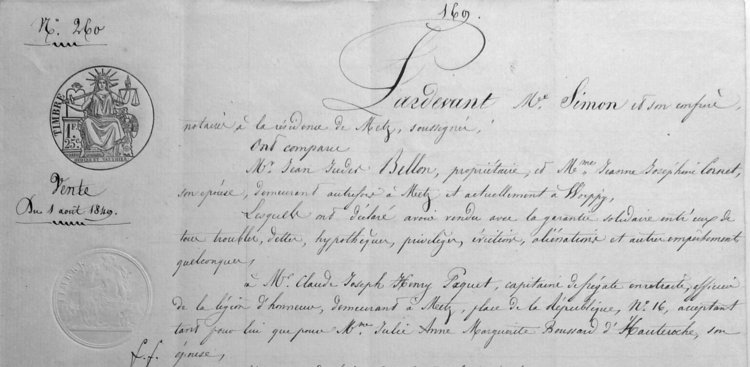 169.
N.° 260
TIMBRE
1 F.
25 c.
Vente
Du 1 août 1849.
Pardevant Me. Simon et son confrère,
notaires à la résidence de Metz, soussignés,
Ont comparu
Mr. Jean Billon, propriétaire, et Mme. Jeanne Joséphine Cornet,
son épouse, demeurant autrefois à Metz et actuellement à Woippy,
Lesquels ont déclaré avoir vendu avec la garantie solidaire entr'eux de
tous troubles, dettes, hypothèques, privilèges, évictions, aliénations et autres empêchements
quelconques,
à Mr. Claude Joseph Henry Paquet, capitaine de frégate en retraite, officier
de la légion d'honneur, demeurant à Metz, place de la République, N.° 16, acceptant
tant pour lui que pour Mme. Julie Anne Marguerite Boussard d'Hauteroche, son
f.f. épouse,